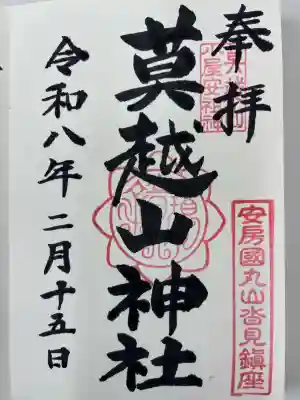 奉拝
莫越山神社
令和八年二月十五日
安房國丸山沓見鎮座